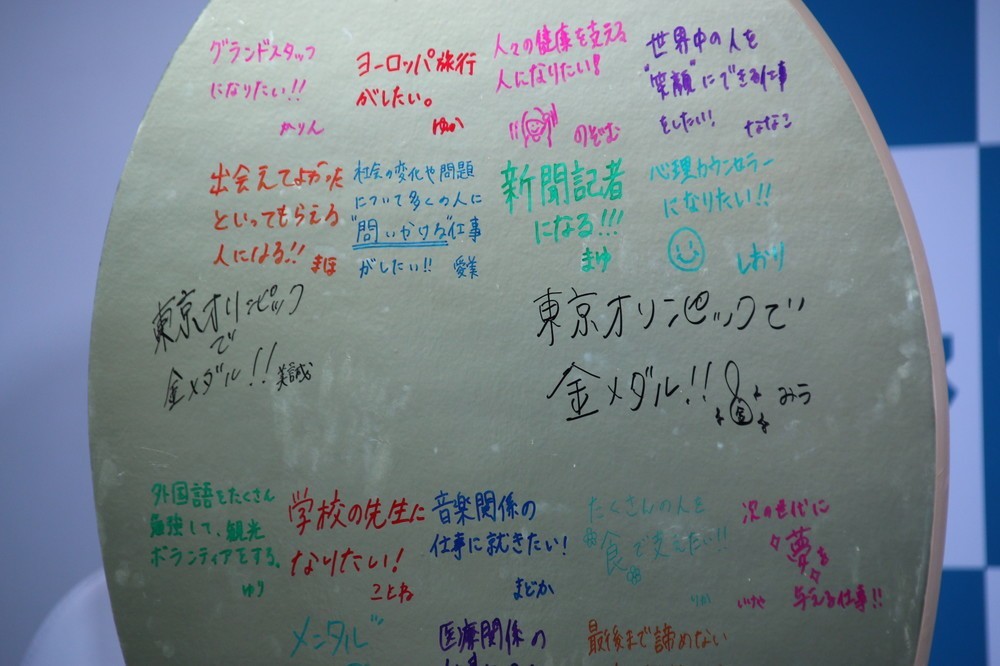 グランドスタッフ
になりたい!!
かりん
ヨーロッパ旅行
がしたい。
ゆか
人々の健康を支える
人になりたい!
のぞむ
世界中の人を
"笑顔"にできる仕事
をしたい!
ななこ
出会えてよかった
といってもらえる
人になる!!
まほ
社会の変化や問題
について多くの人に
"問いかける"仕事
がしたい!!
愛美
新聞記者
になる!!!
まゆ
心理カウンセラー
になりたい!!
しおり
東京オリンピック
で
金メダル!!
美誠
東京オリンピックで
金メダル!!
金
みう
外国語をたくさん
勉強して、観光
ボランティアをする。
ゆり
学校の先生に
なりたい!
ことね
音楽関係の
仕事に就きたい!
まどか
たくさんの人を
食で支えたい!!
りか
次の世代に
夢を
与える仕事!!
メンタル
医療関係の
最後まで諦めない